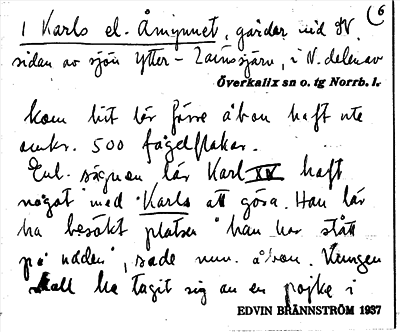 6
1 Karls el. Åmynnet, gårdar vid N.
sidan av sjön Ytter-Lainsjärv, i N. delen av
Överkalix sn o. tg Norrb. l.
kom hit lär förre åbon haft ute
omkr. 500 fågelflakar.
Enl. sägnen lär Karl XV haft
något med Karls att göra. Han lär
ha besökt platsen "han har stått
på näden", sade nuv. åbon. Kungen
skall ha tagit sig an en pojke i
EDVIN BRÄNNSTRÖM 1937